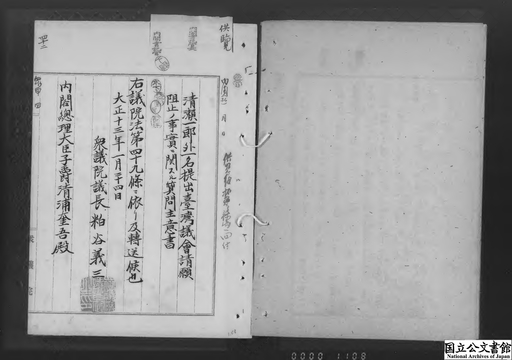 供覧
清瀬一郎外一名提出臺灣議會請願
阻止ノ事實ニ関スル質問主意書
右議院法第四十九條ニ依リ及轉送候也
大正十三年一月二十四日
衆議院議長粕谷義三
内閣總理大臣子爵清浦奎吾殿
国立公文書館
National Archives of Japan
0000 1108